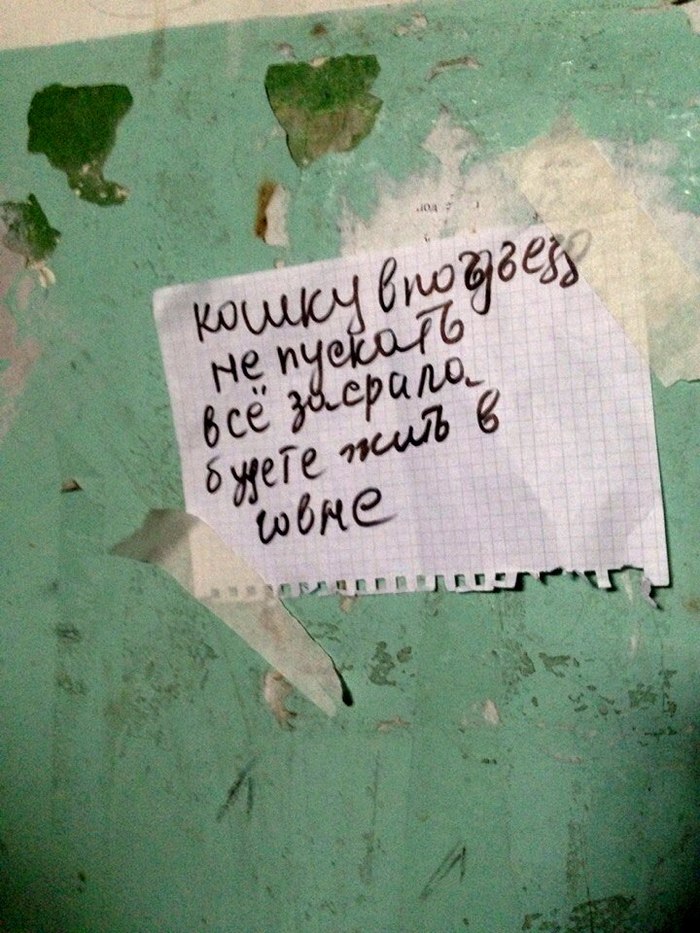 кошку в подъезд
не пускать
всё засрала
будете жить в
говне